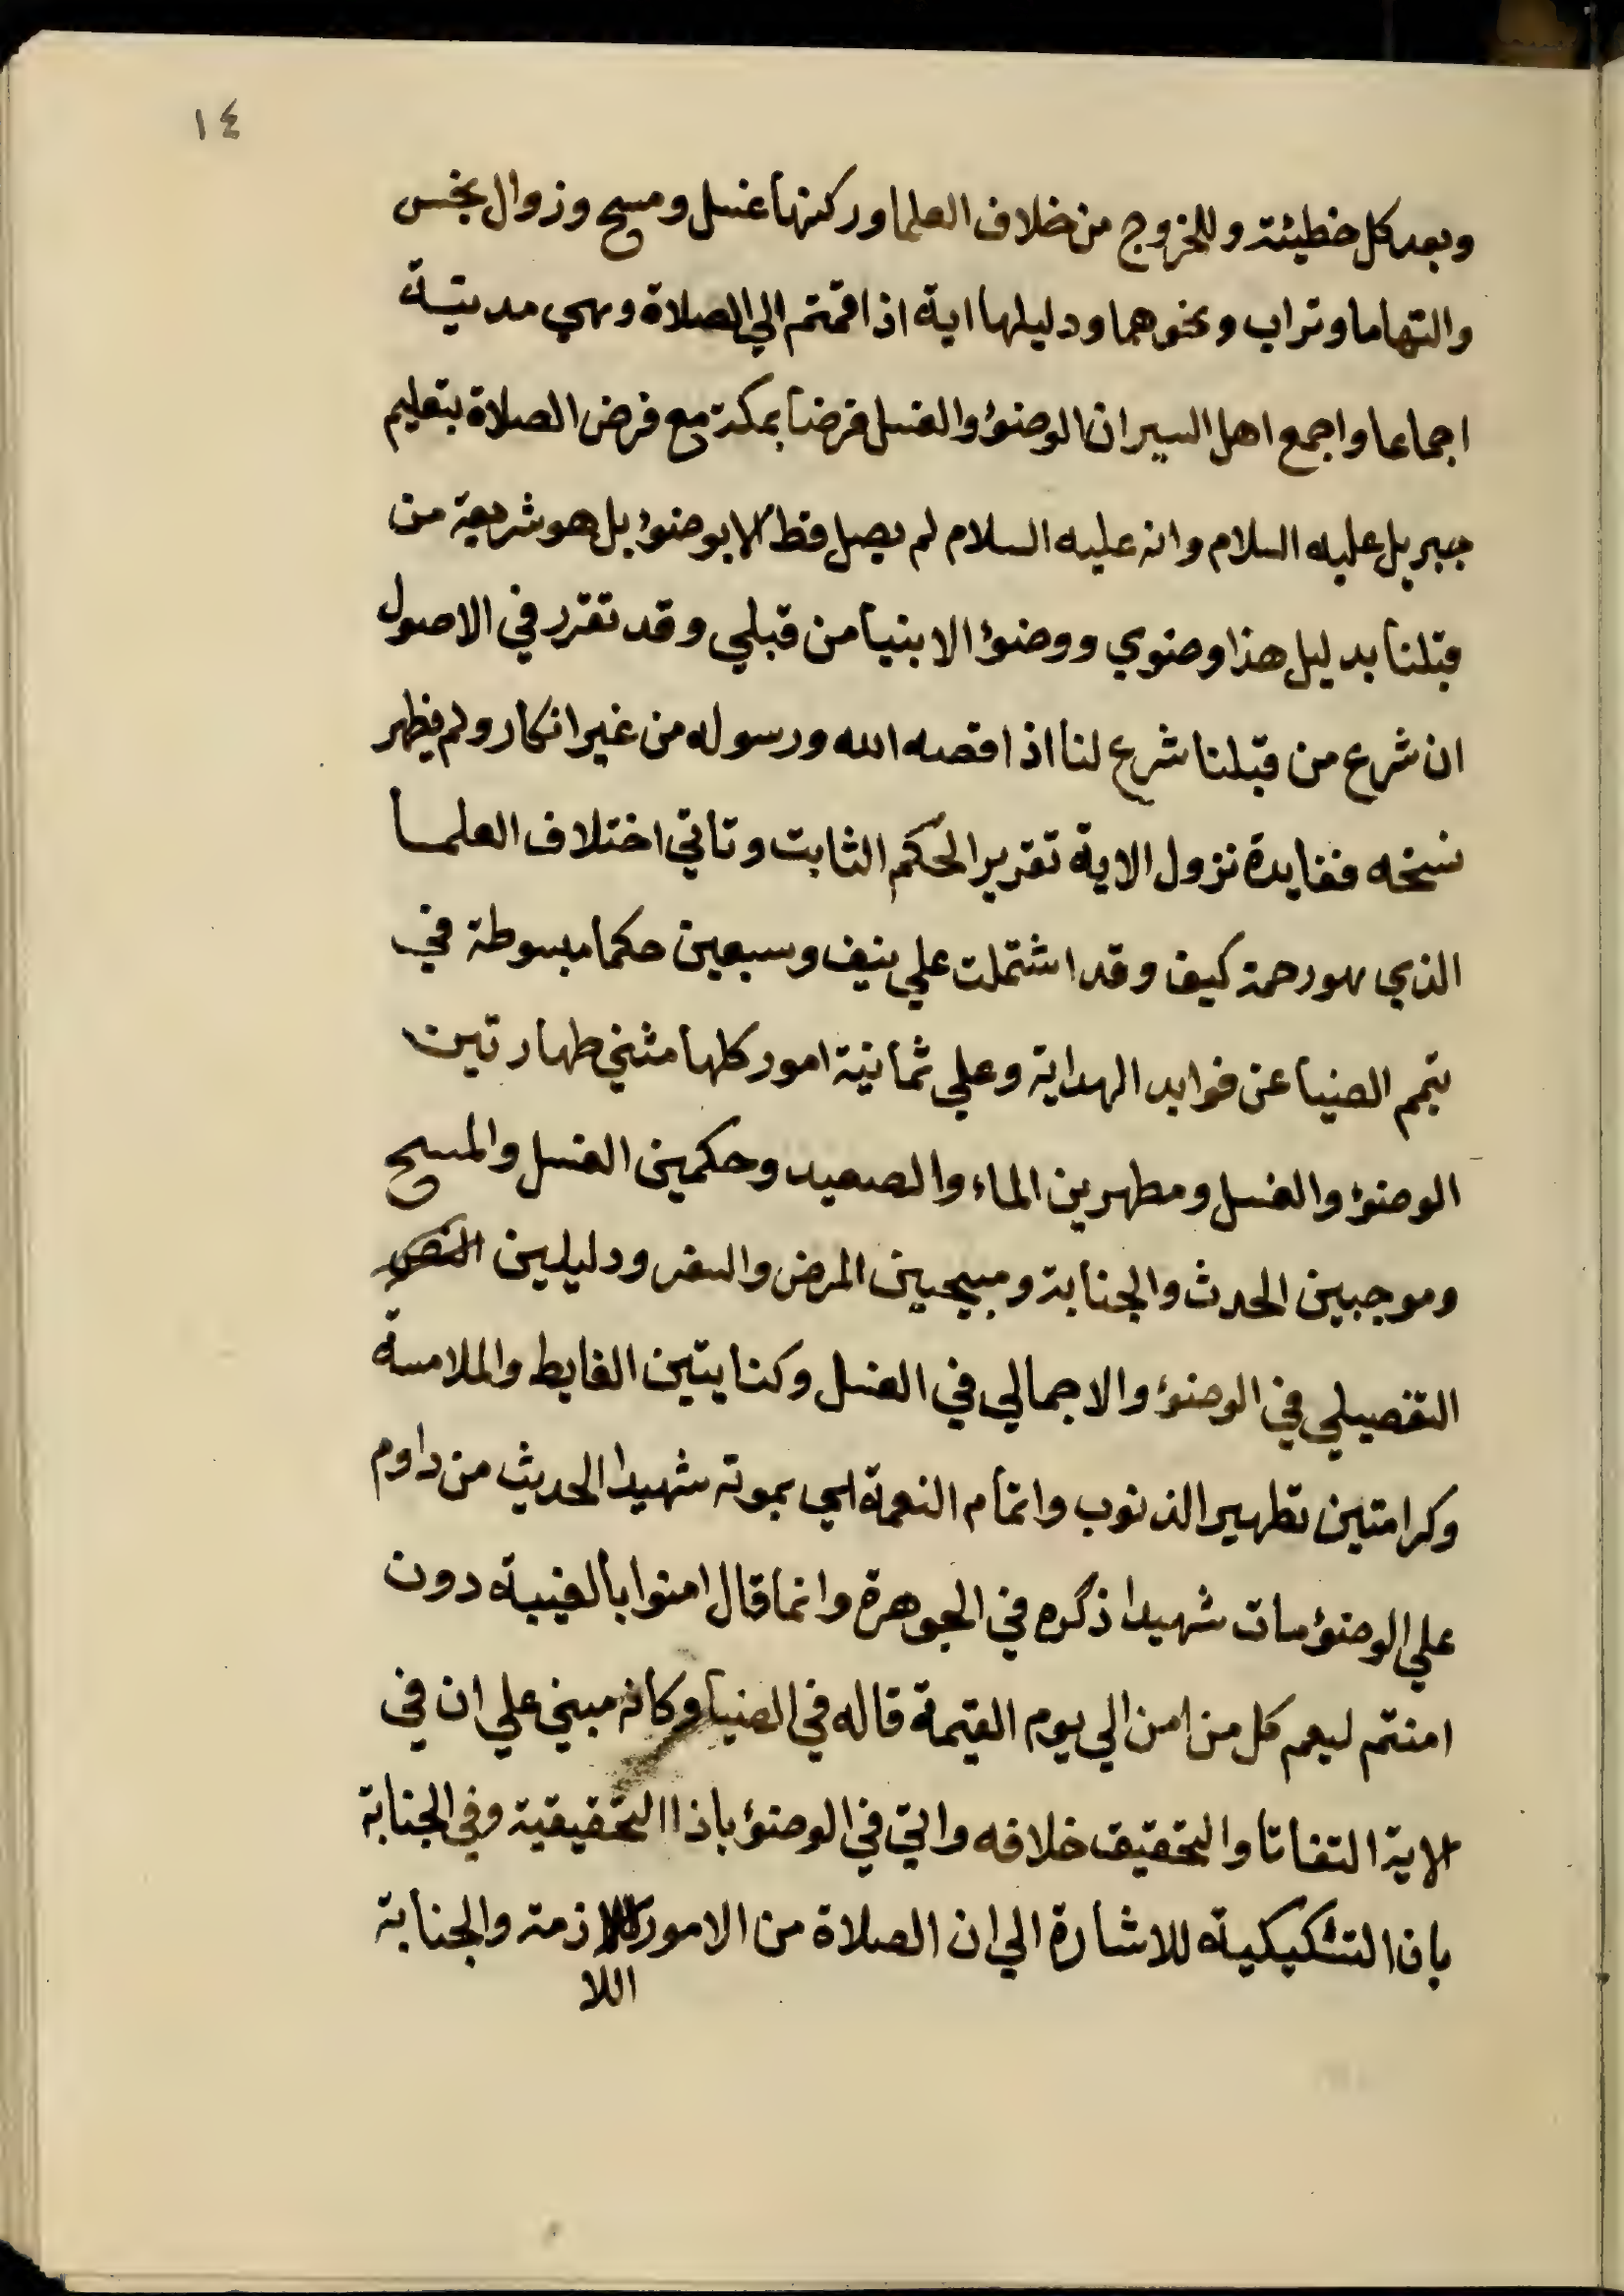 ١٤
وبعد كل خطيئة وللخروج من خلاف العلما وركنها غسل ومسح وزوال نجس
والتها ما وتراب ونحوهما ودليلها اية اذا قمتم الي الصلاة وهي مدنية
اجماعا واجمع اهل السير ان الوضوء والغسل فرضا بمكة مع فرض الصلاة بتعليم
جبريل عليه السلام وانه عليه السلام لم يصل قط الا بوضوء بل هو شريعة من
قبلنا بدليل هذا وضوي ووضوء الانبيا من قبلي وقد تقرر في الاصول
ان شرع من قبلنا شرع لنا اذا قصه الله ورسوله من غير انكار ولم يظهر
نسخه ففايدة نزول الاية تقرير الحكم الثابت وتاتي اختلاف العلما
الذي هو رحمة كيف وقد اشتملت علي نيف وسبعين حكما مبسوطة في
تيمم الضيا عن فوايد الهداية وعلي ثمانية امور كلها مثني طهارتين
الوضوء والغسل ومطهرين الماء والصعيد وحكمين الغسل والمسح
وموجبين الحدث والجنابة ومبيحين المرض والسفر ودليلين
التفصيلي في الوضوء والاجمالي في الغسل وكنايتين الغايط والملامسة
وكرامتين تطهير الذنوب واتمام النعمة اي بموته شهيدا لحديث من داوم
علي الوضوء مات شهيدا ذكره في الجوهرة وانما قال امنوا بالغيبة دون
امنتم ليعم كل من امن الي يوم القيمة قاله في الضيا وكانه مبني علي ان في
الاية التفاتا والتحقيق خلافه واتي في الوضوء باذا التحقيقية وفي الجنابة
بان التشكيكية للاشارة الي ان الصلاة من الامور اللازمة والجنابة
اللا